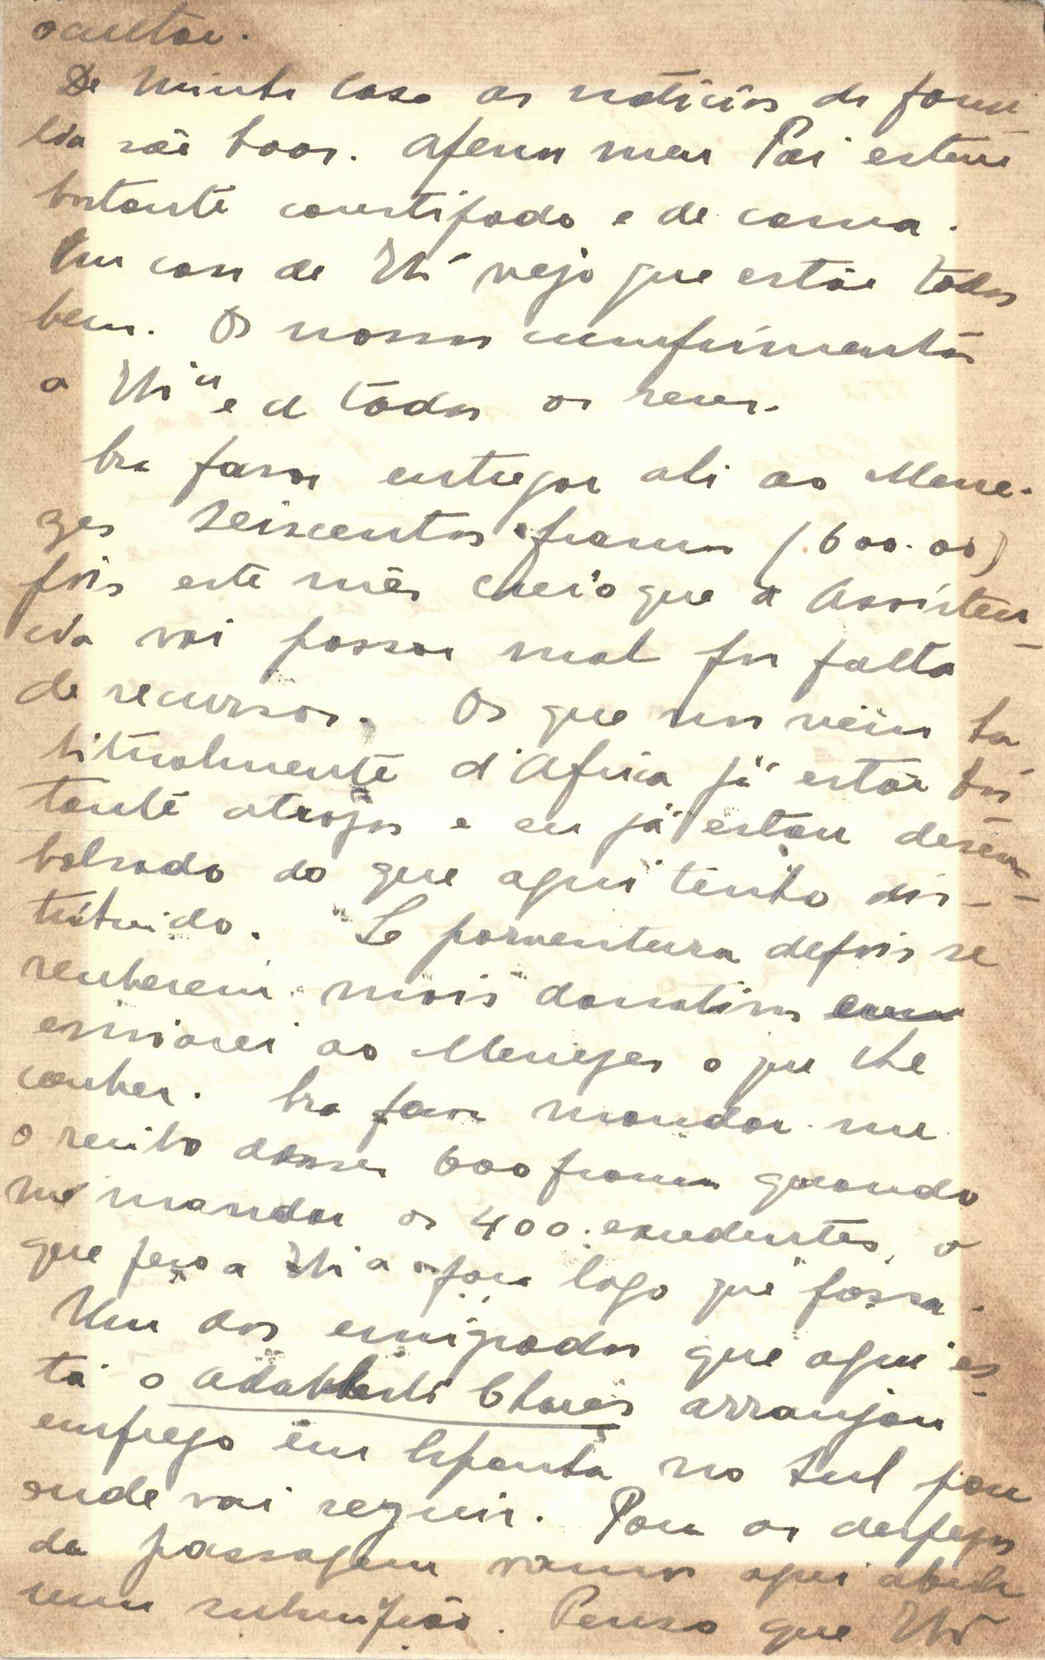 ocultar.
De minha casa as noticias de fami-
lia são boas. Apenas meu Pai esteve
bastante constipado e de cama.
Em casa de V. vejo que estão todos
bem. Os nossos cumprimentos
a e a todos os seus.
Era favor entregar ali ao Mene-
zes seiscentos francos (600.00)
pois este mês creio que a Assisten-
cia vai passar mal por falta
de recursos. Os que nos vêm ha-
bitualmente d'Africa já estão bas-
tante atrazos e eu já estou desem-
bolsado do que aqui tenho dis-
tribuido. Se porventura depois se
receberem mais donativos
enviarei ao Menezes o que lhe
couber. Era favor mandar-me
o recibo desses 600 francos quando
me mandar os 400 excedentes, o
que peço a faça logo que possa.
Um dos emigrados que aqui es-
tá o Adalberto Chaves arranjou
emprego em Espanha no Sul para
onde vai seguir. Para as despezas
da passagem vamos aqui abrir
uma subscrição. Penso que